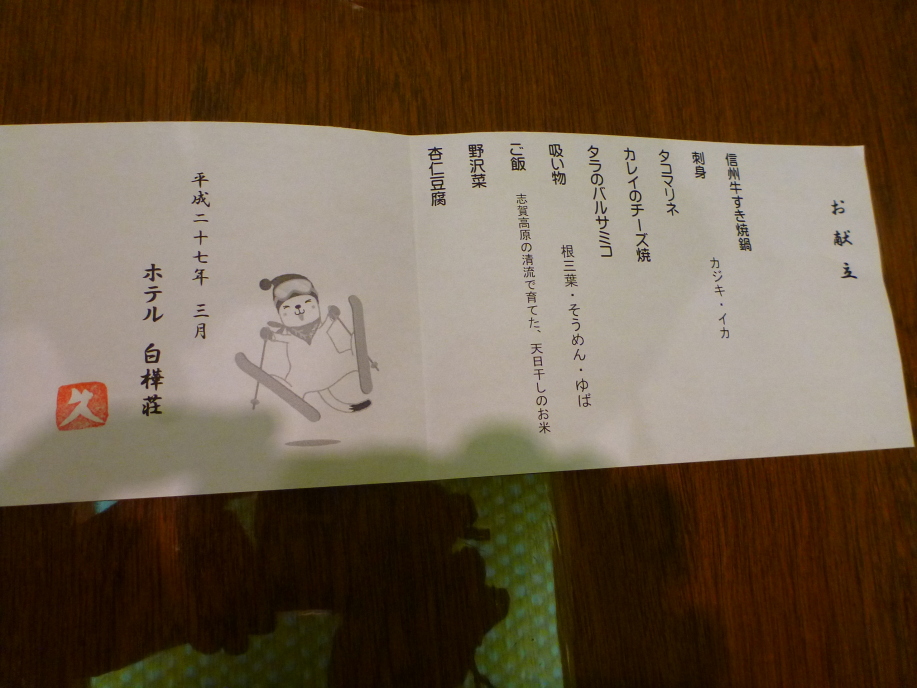 お献立
信州牛すき焼鍋
刺身　カジキ・イカ
タコマリネ
カレイのチーズ焼
タラのバルサミコ
吸い物　根三葉・そうめん・ゆば
ご飯　志賀高原の清流で育てた、天日干しのお米
野沢菜
杏仁豆腐
平成二十七年　三月
ホテル　白樺荘
久